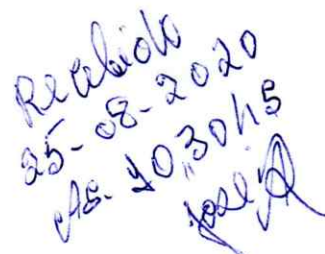 Recebido
25-08-2020
As. 10:30hs
José A